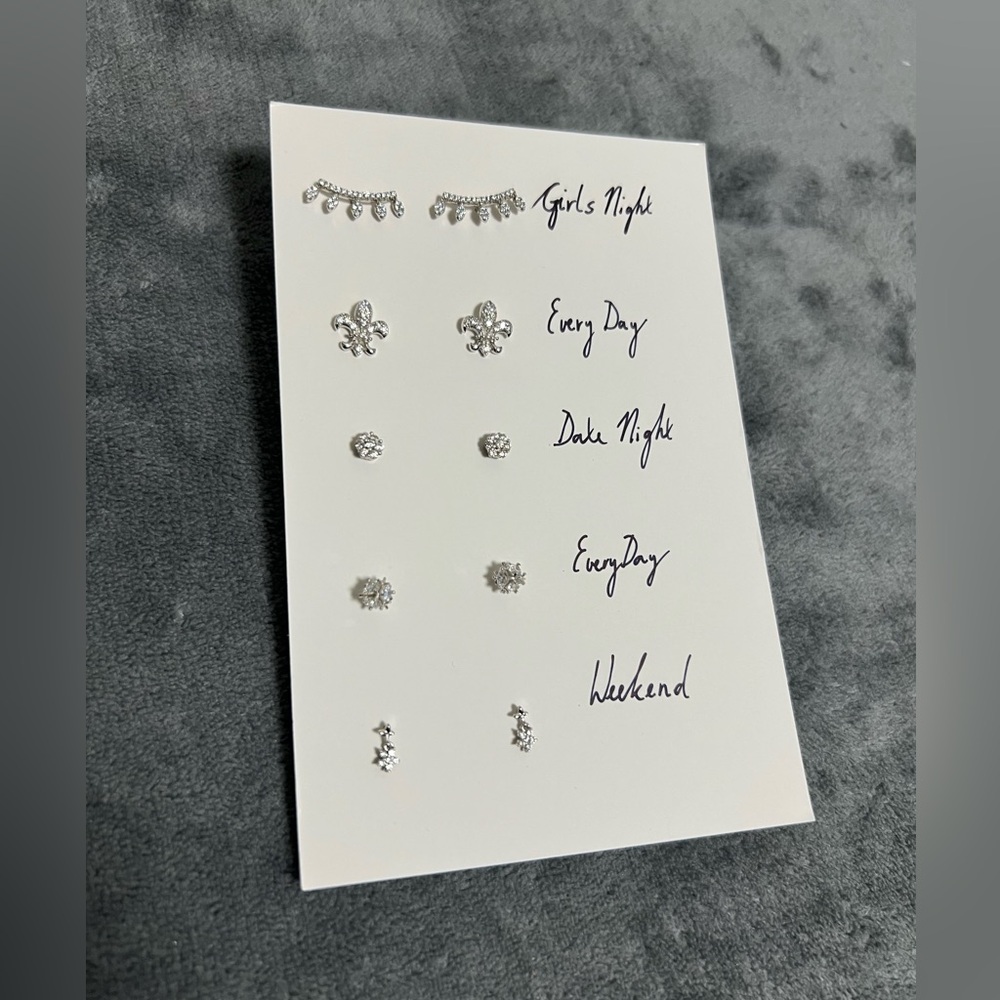 Girls Night
Every Day
Date Night
EveryDay
Weekend